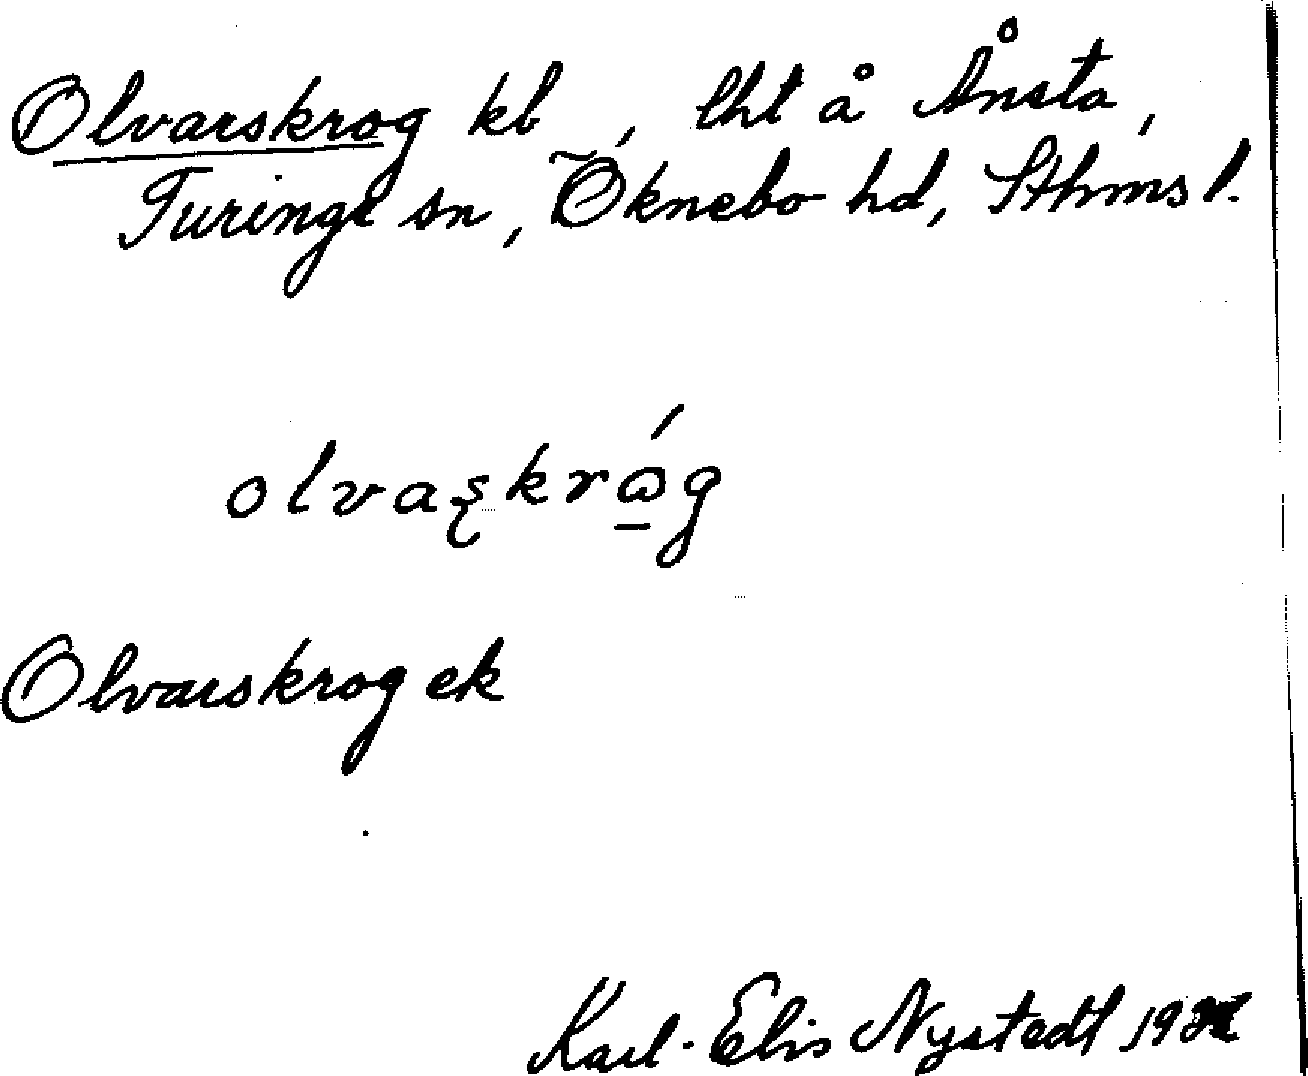 Olvarskrog kb, lht å Ånsta,
Turinge sn, Öknebo hd, Sthms l.
olvaʂkrǻg
Olvarskrog ek
Karl-Elis Nystedt